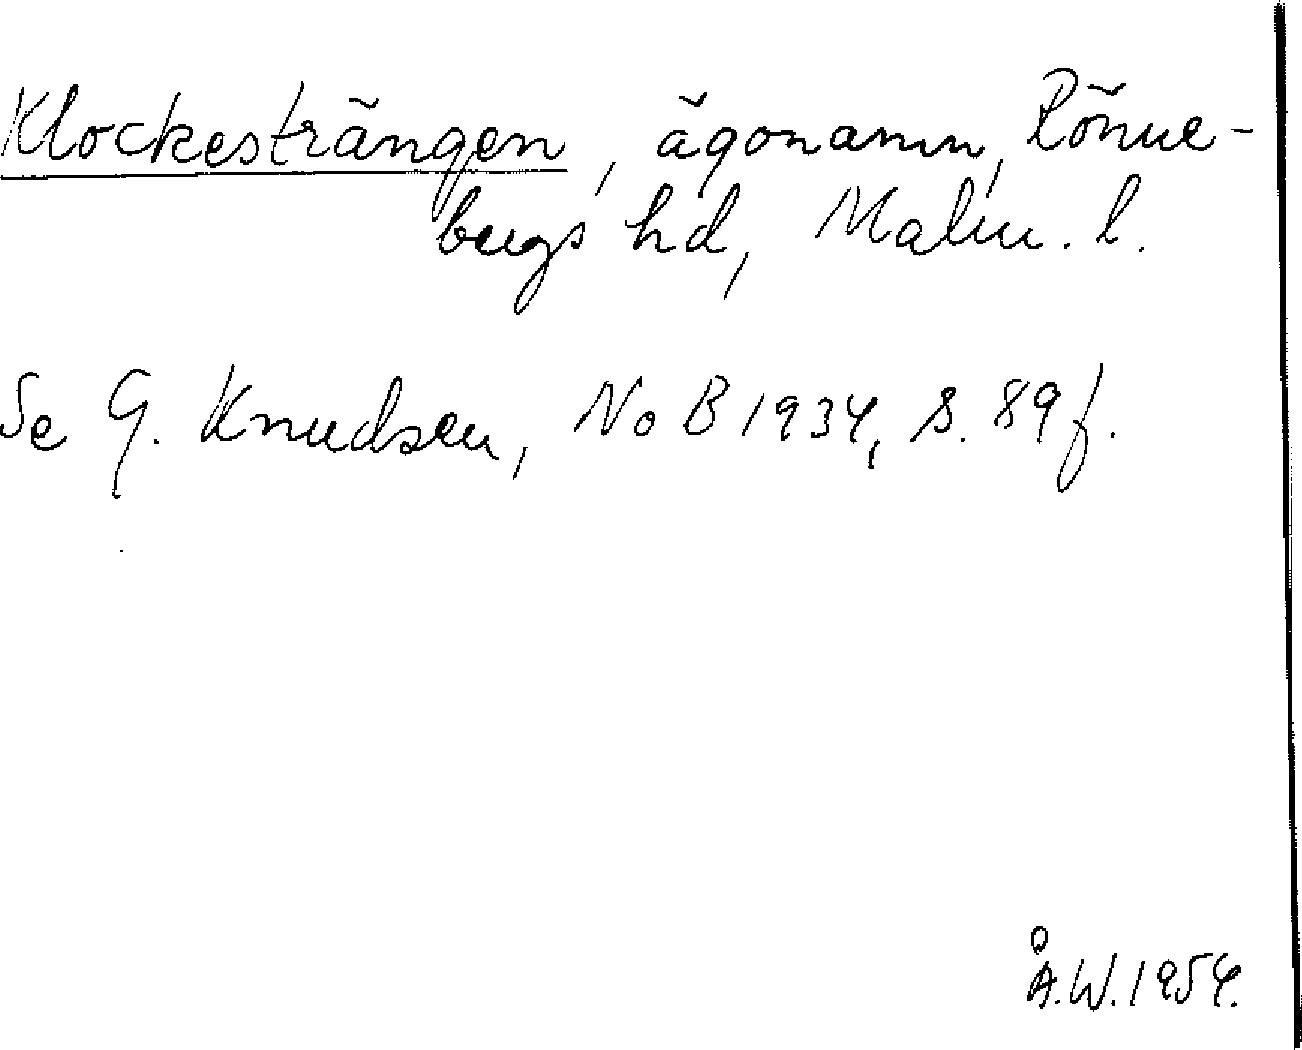 Klockesträngen, ägonamn, Rönne-
bergs hd, Malm. l.
Se G. Knudsen, NoB 1934, s. 89 f.
Å.W. 1954.